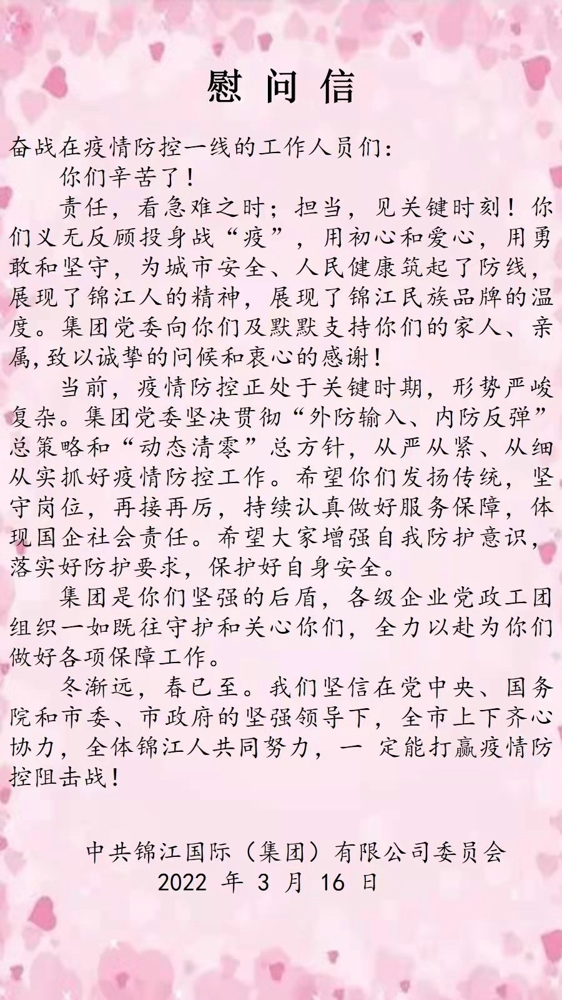 慰 问 信
奋战在疫情防控一线的工作人员们：
你们辛苦了！
责任，看急难之时；担当，见关键时刻！你
们义无反顾投身战“疫”，用初心和爱心，用勇
敢和坚守，为城市安全、人民健康筑起了防线，
展现了锦江人的精神，展现了锦江民族品牌的温
度。集团党委向你们及默默支持你们的家人、亲
属,致以诚挚的问候和衷心的感谢！
当前，疫情防控正处于关键时期，形势严峻
复杂。集团党委坚决贯彻“外防输入、内防反弹”
总策略和“动态清零”总方针，从严从紧、从细
从实抓好疫情防控工作。希望你们发扬传统，坚
守岗位，再接再厉，持续认真做好服务保障，体
现国企社会责任。希望大家增强自我防护意识，
落实好防护要求，保护好自身安全。
集团是你们坚强的后盾，各级企业党政工团
组织一如既往守护和关心你们，全力以赴为你们
做好各项保障工作。
冬渐远，春已至。我们坚信在党中央、国务
院和市委、市政府的坚强领导下，全市上下齐心
协力，全体锦江人共同努力，一 定能打赢疫情防
控阻击战！
中共锦江国际（集团）有限公司委员会
2022 年 3 月 16 日